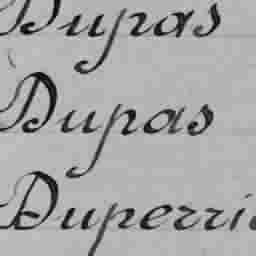 Dupas
Dupas
Duperri